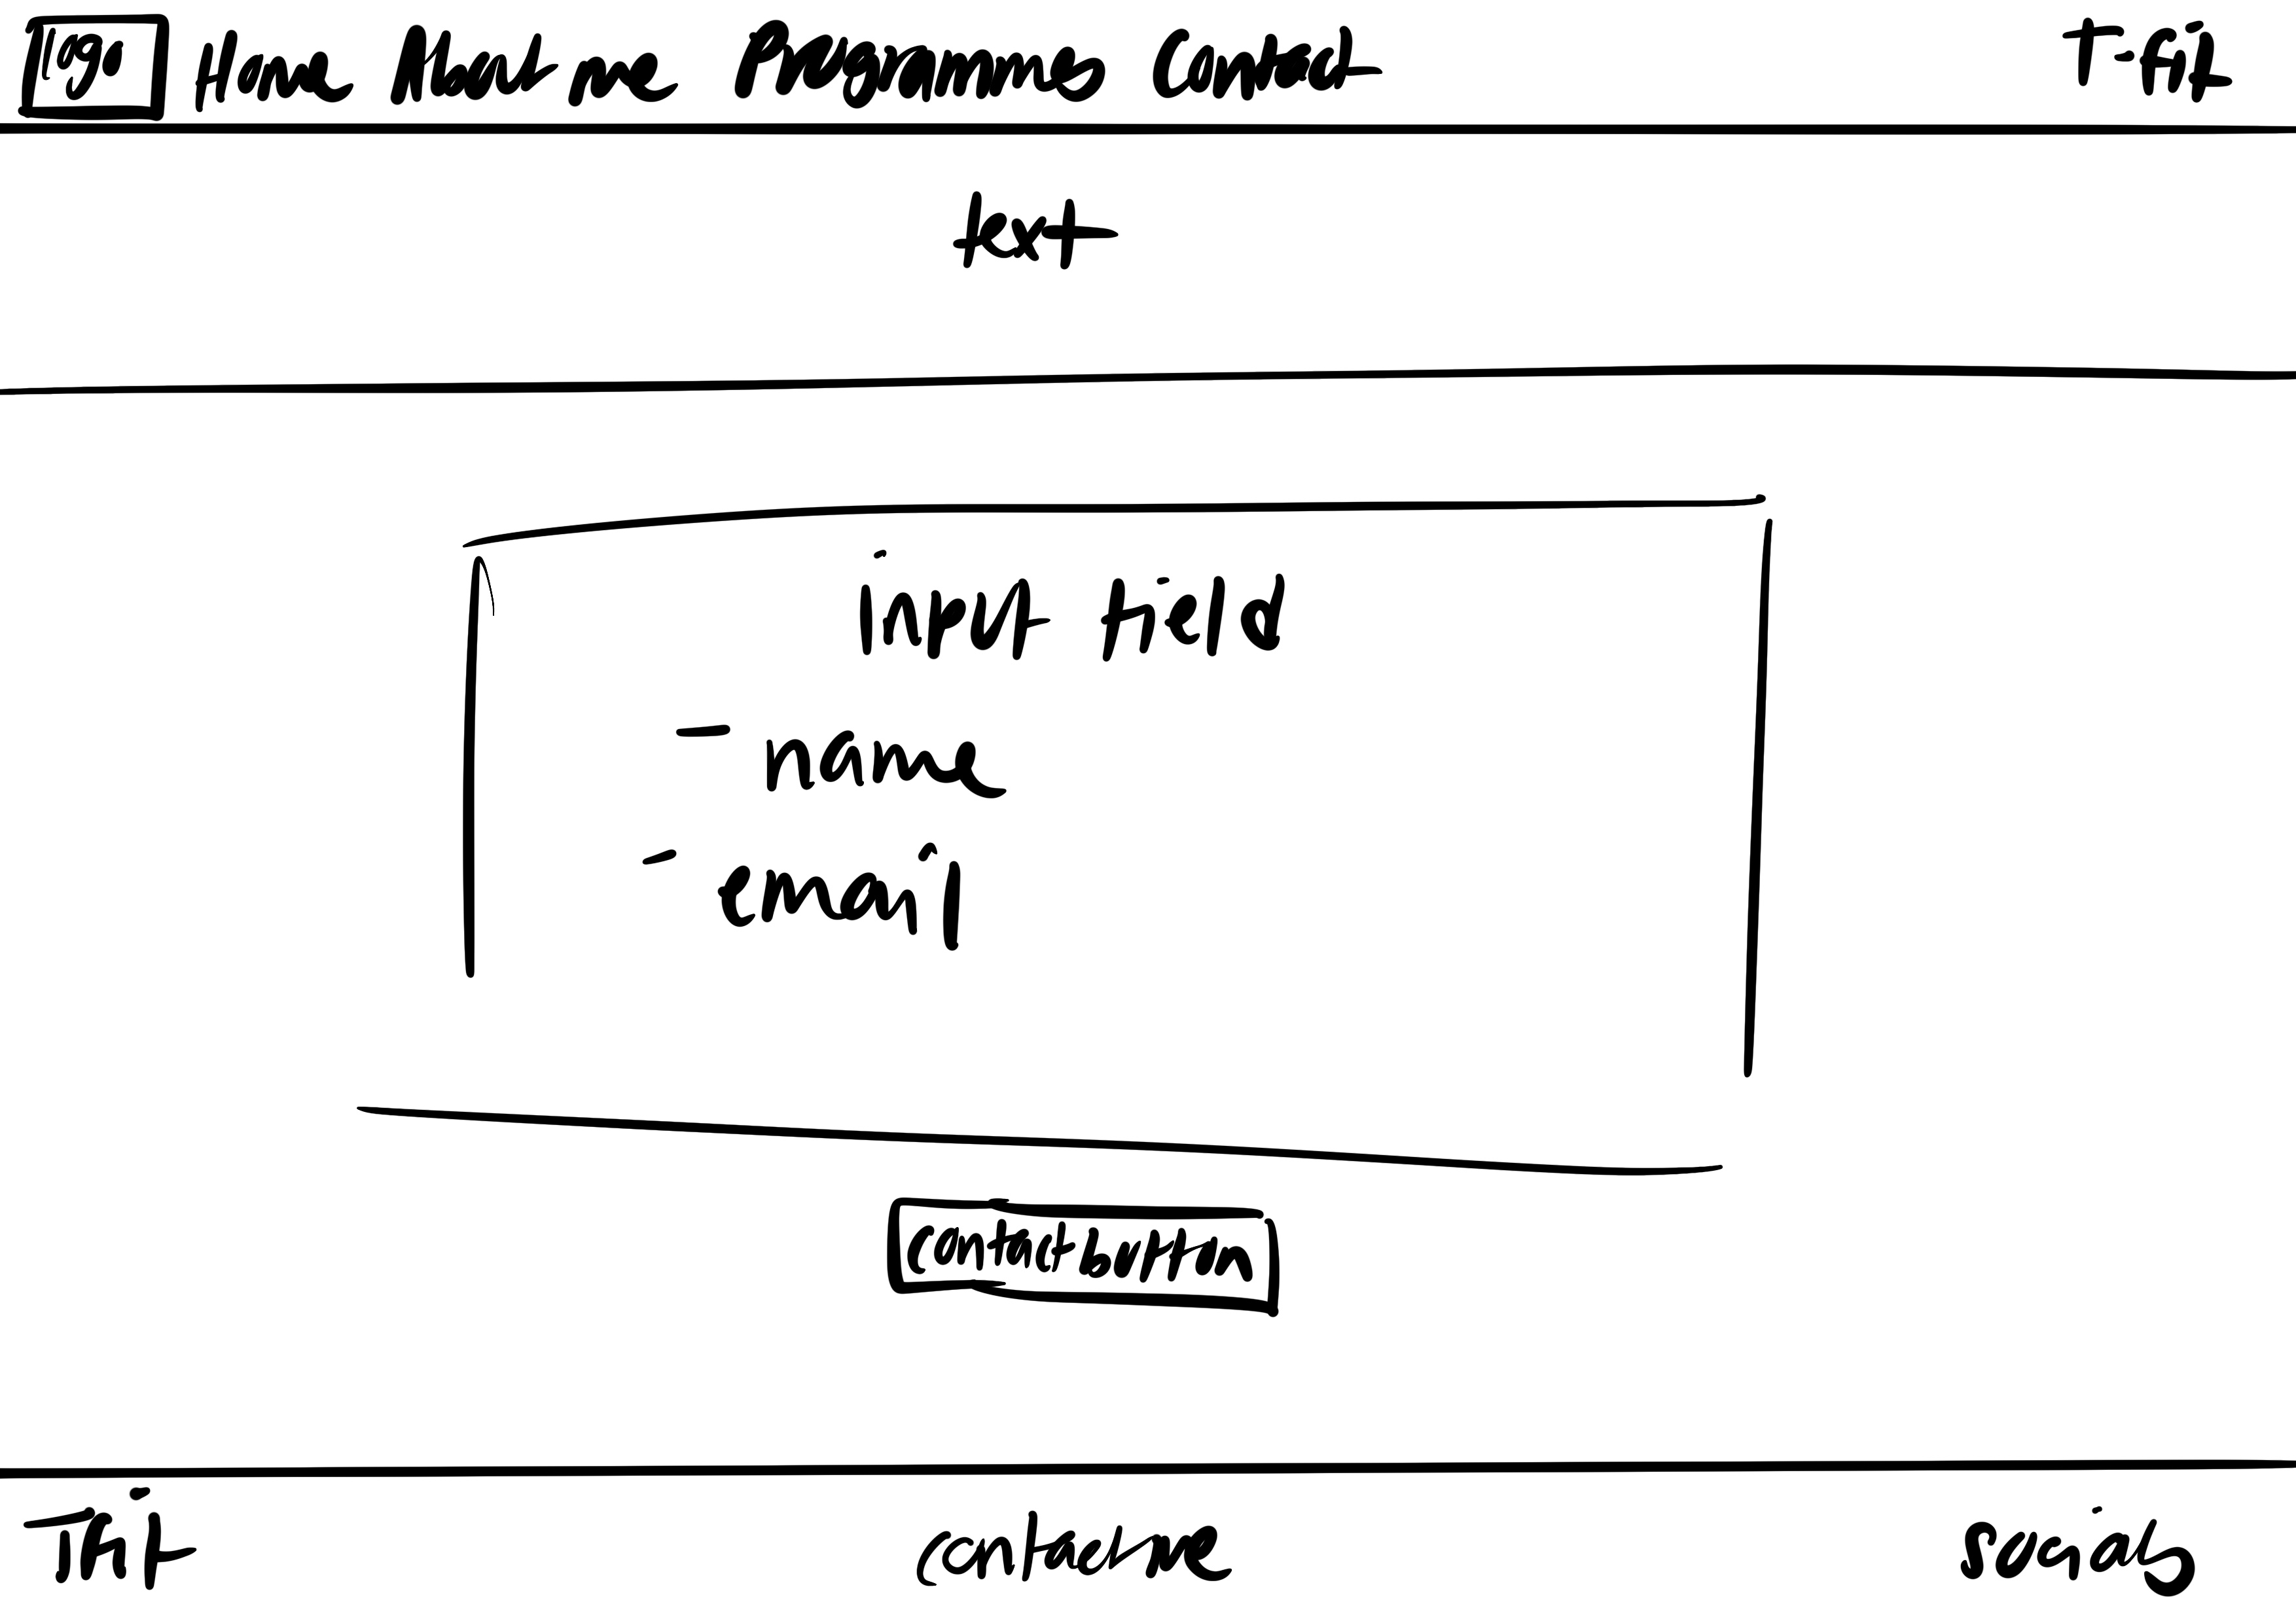 logo Home About me Programms Contact T-fit
text
input field
- name
- email
contact button
Tfit contact me socials